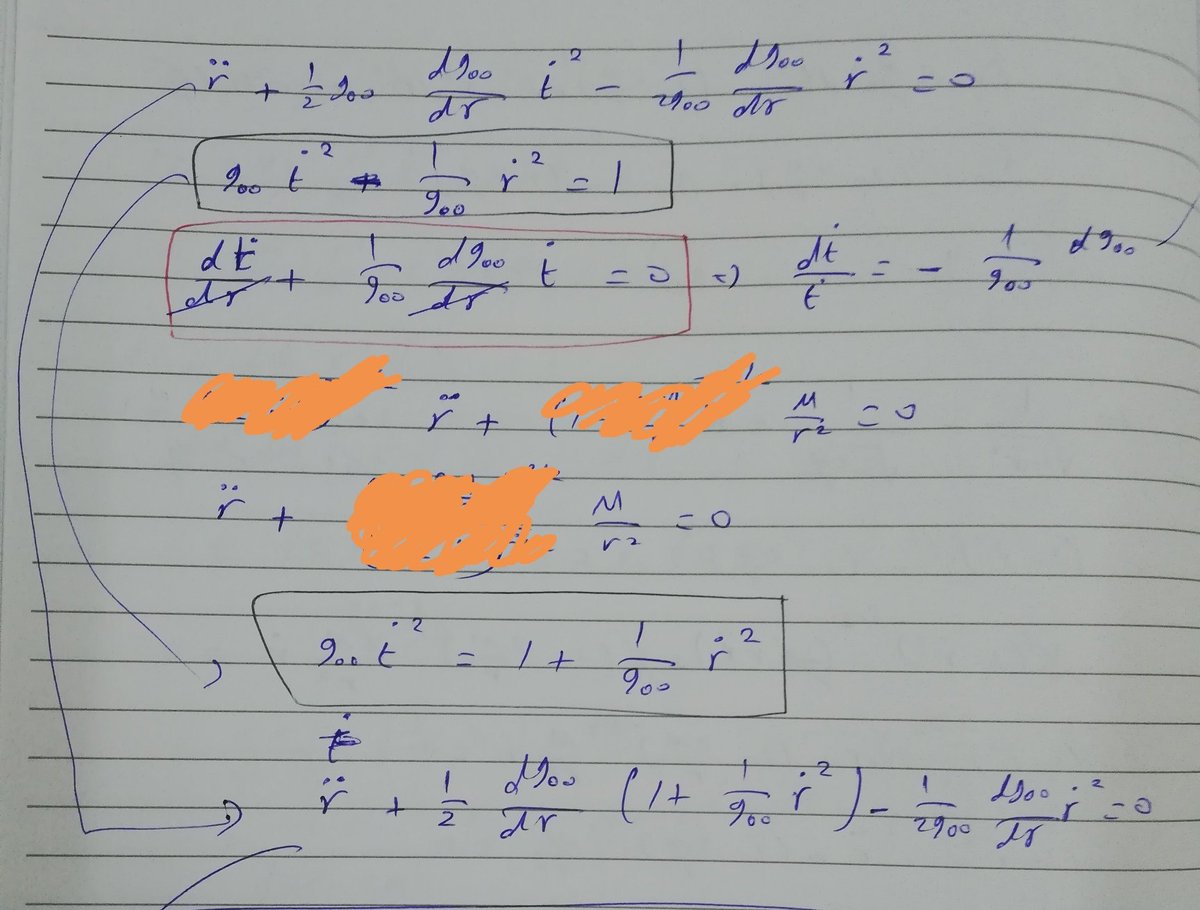 r̈ + 1/2 g₀₀ dg₀₀/dr ṫ² − 1/2g₀₀ dg₀₀/dr ṙ² = 0
g₀₀ ṫ² − 1/g₀₀ ṙ² = 1
dṫ/dr + 1/g₀₀ dg₀₀/dr ṫ = 0 ⇒ dṫ/ṫ = − 1/g₀₀ dg₀₀
r̈ + M/r² = 0
r̈ + M/r² = 0
g₀₀ ṫ² = 1 + 1/g₀₀ ṙ²
r̈ + 1/2 dg₀₀/dr (1 + 1/g₀₀ ṙ²) − 1/2g₀₀ dg₀₀/dr ṙ² = 0